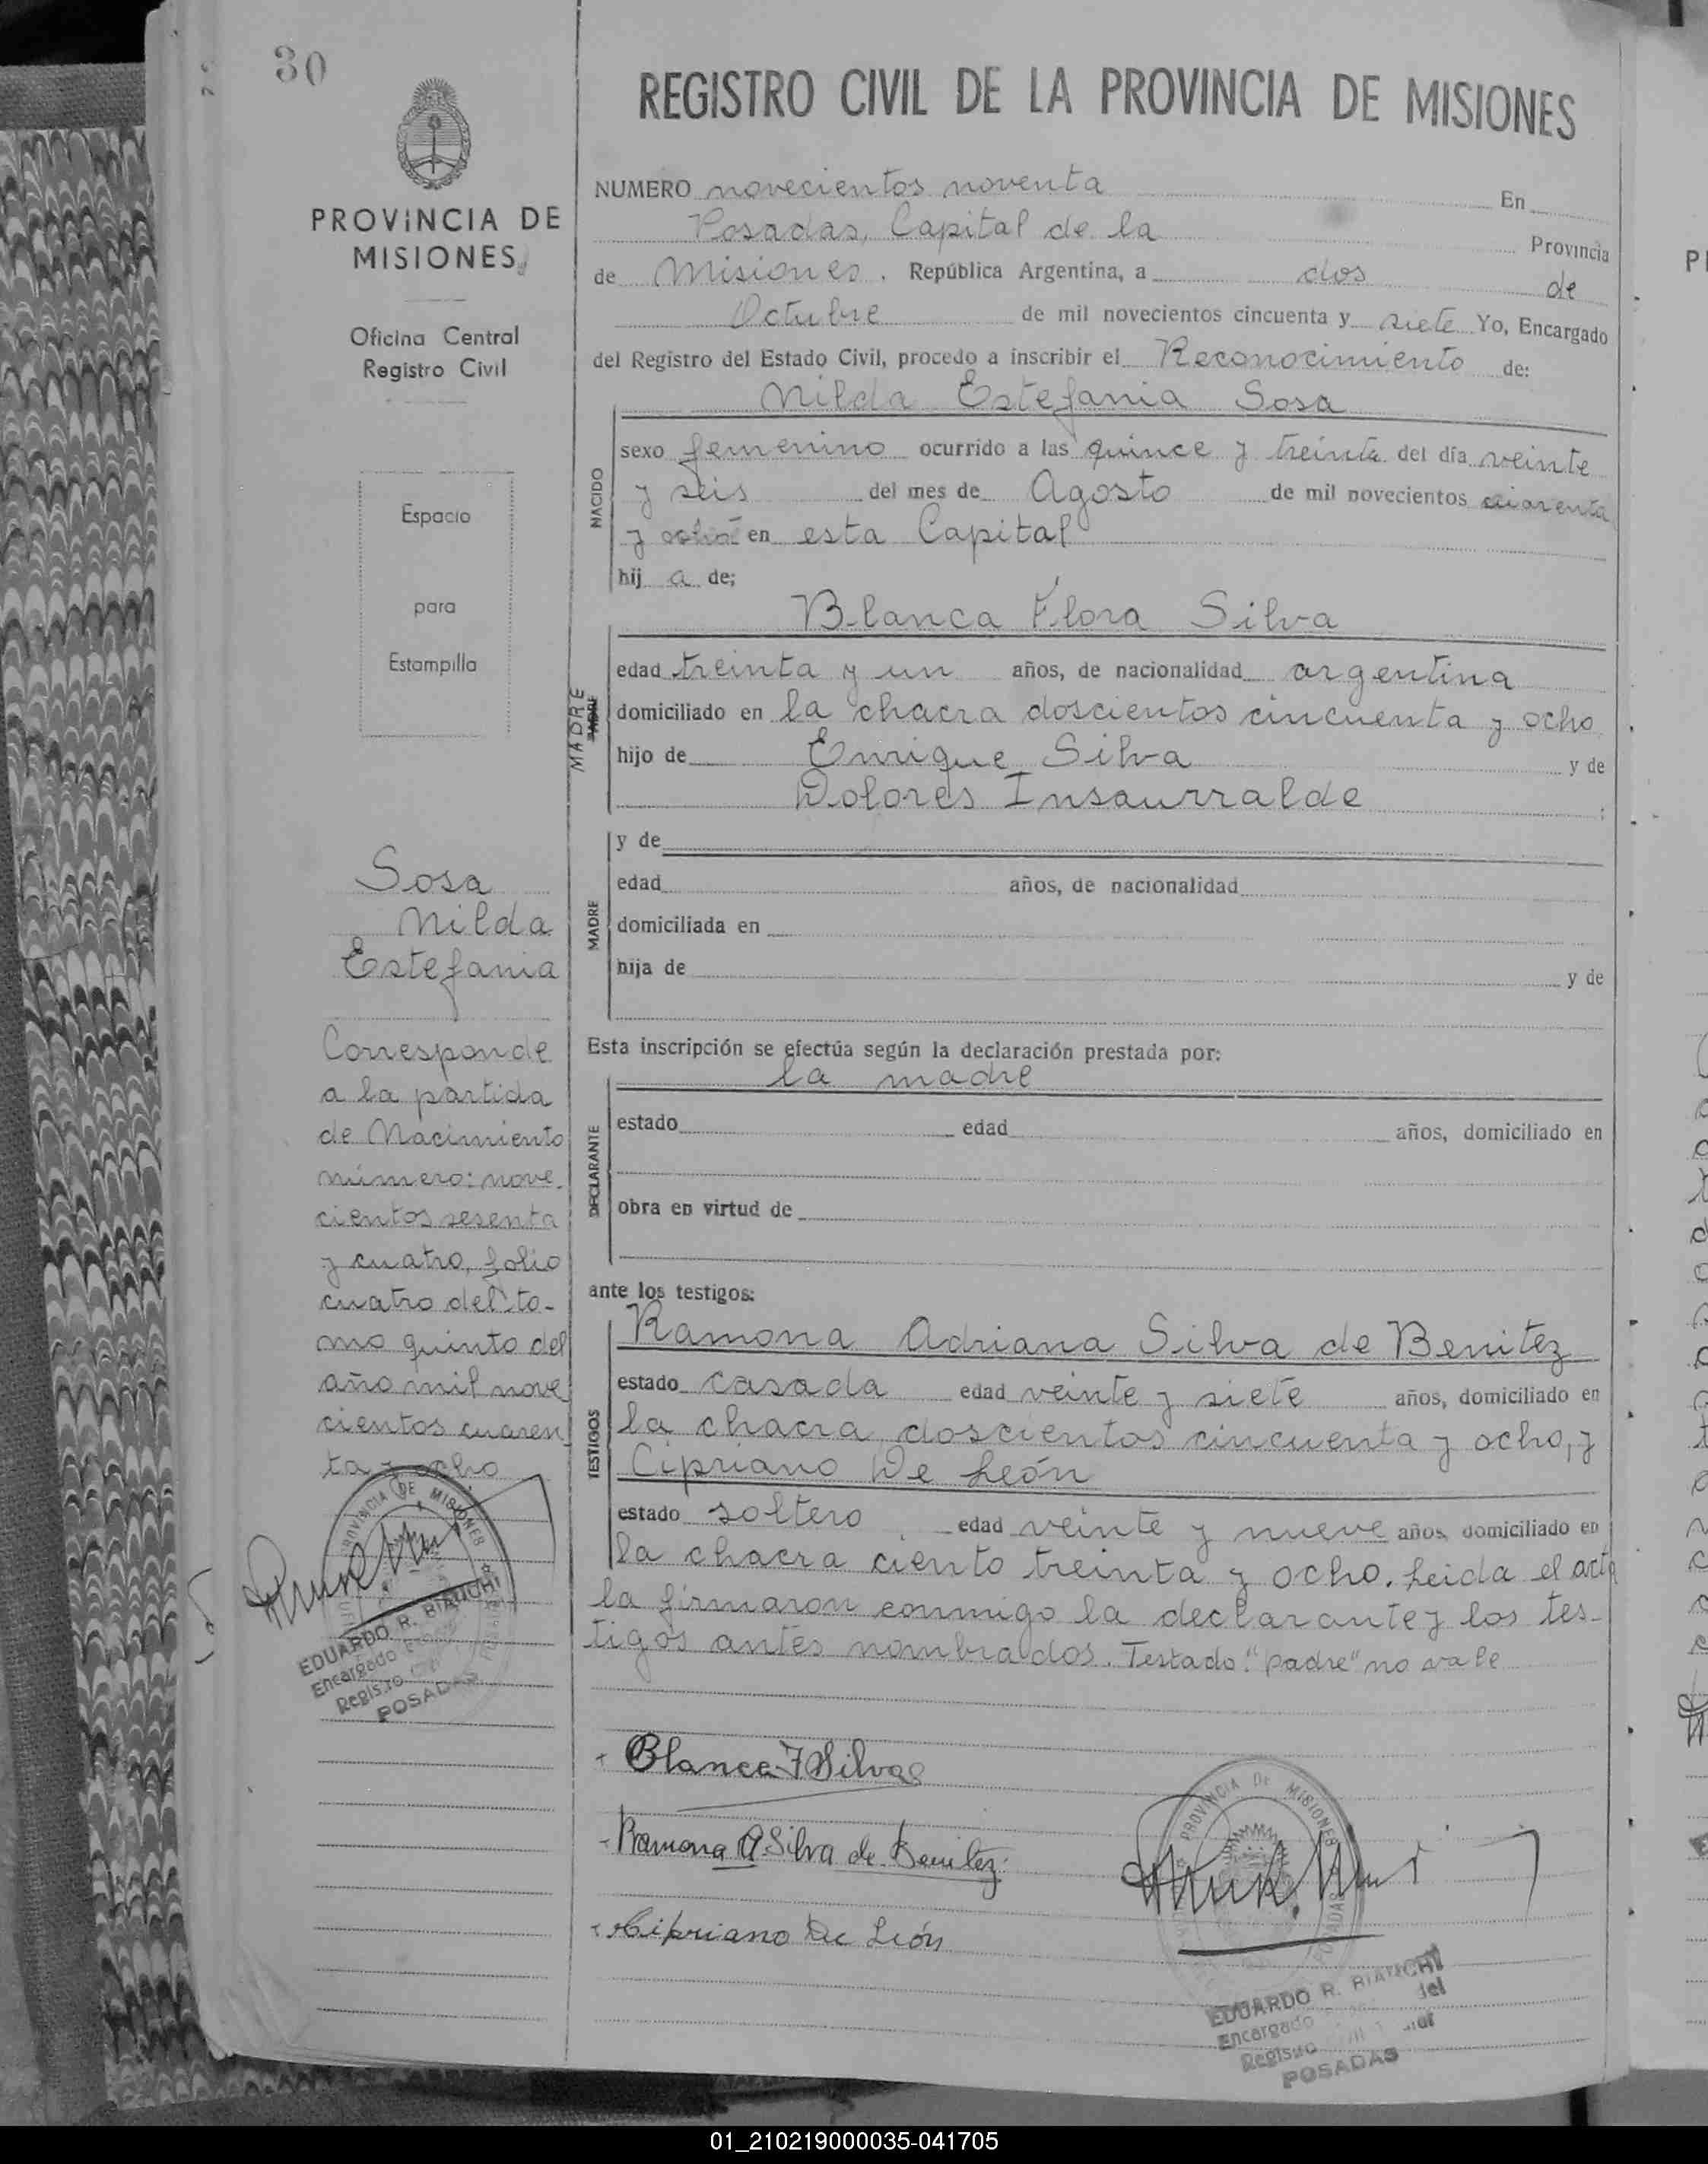 30
PROVINCIA DE
MISIONES
Oficina Central
Registro Civil
Espacio
para
Estampilla
Sosa
Nilda
Estefania
Corresponde
a la partida
de Nacimiento
número: nove-
cientos sesenta
y cuatro, folio
cuatro del to-
mo quinto del
año mil nove
cientos cuaren
ta y ocho
PROVINCIA DE MISIONES
EDUARDO R. BIANCHI
Encargado
Registro
POSADAS
REGISTRO CIVIL DE LA PROVINCIA DE MISIONES
NUMERO novecientos noventa En
Posadas, Capital de la Provincia
de Misiones. República Argentina, a dos de
Octubre de mil novecientos cincuenta y siete Yo, Encargado
del Registro del Estado Civil, procedo a inscribir el Reconocimiento de:
Nilda Estefania Sosa
NACIDO
sexo femenino ocurrido a las quince y treinta del día veinte
y seis del mes de Agosto de mil novecientos cuarenta
y ocho en esta Capital
hij a de;
Blanca Flora Silva
MADRE
PADRE
edad treinta y un años, de nacionalidad argentina
domiciliado en la chacra doscientos cincuenta y ocho
hijo de Enrique Silva y de
Dolores Insaurralde
y de
MADRE
edad años, de nacionalidad
domiciliada en
hija de y de
Esta inscripción se efectúa según la declaración prestada por:
la madre
DECLARANTE
estado edad años, domiciliado en
obra en virtud de
ante los testigos:
Ramona Adriana Silva de Benitez
TESTIGOS
estado casada edad veinte y siete años, domiciliado en
la chacra doscientos cincuenta y ocho, y
Cipriano De León
estado soltero, edad veinte y nueve años, domiciliado en
la chacra ciento treinta y ocho. Leida el acta
la firmaron conmigo la declarante y los tes-
tigos antes nombrados. Testado: "padre" no vale
Blanca F Silva
Ramona A Silva de Benitez
Cipriano De León
PROVINCIA DE MISIONES
POSADAS
EDUARDO R. BIANCHI
Encargado del
Registro
POSADAS
01_210219000035-041705